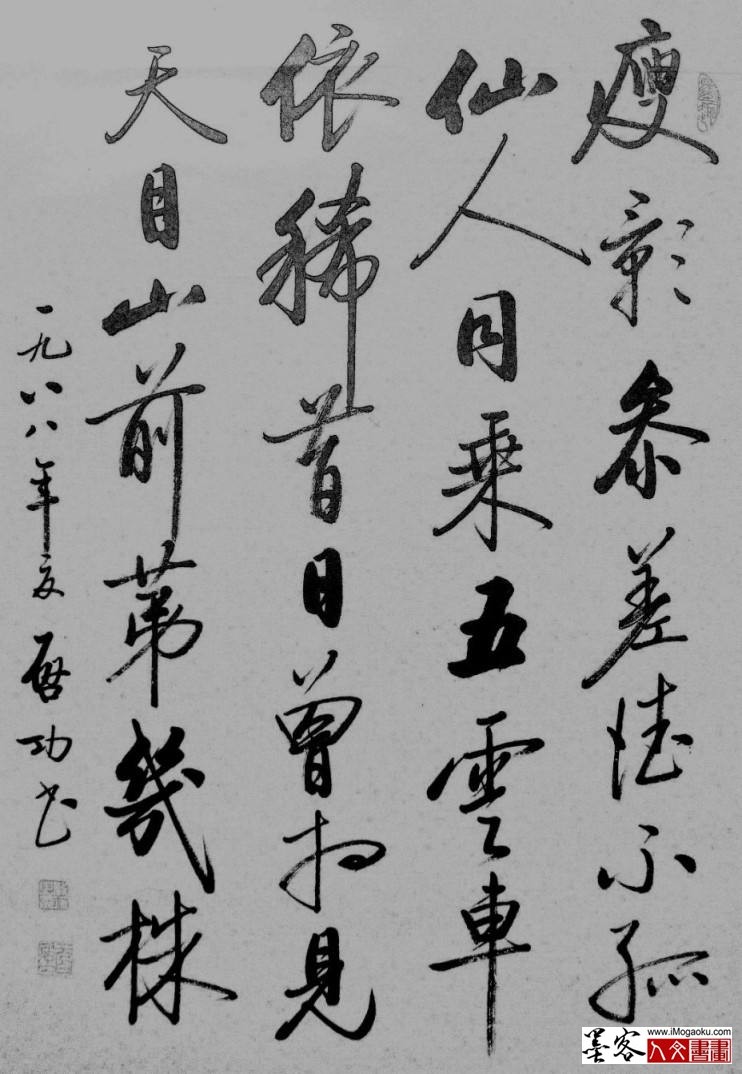 瘦影参差德不孤
仙人同乘五雲車
依稀昔日曾相見
天目山前第幾株
一九八八年夏 啓功書
墨客
www.iMogaoku.com
人文書畫